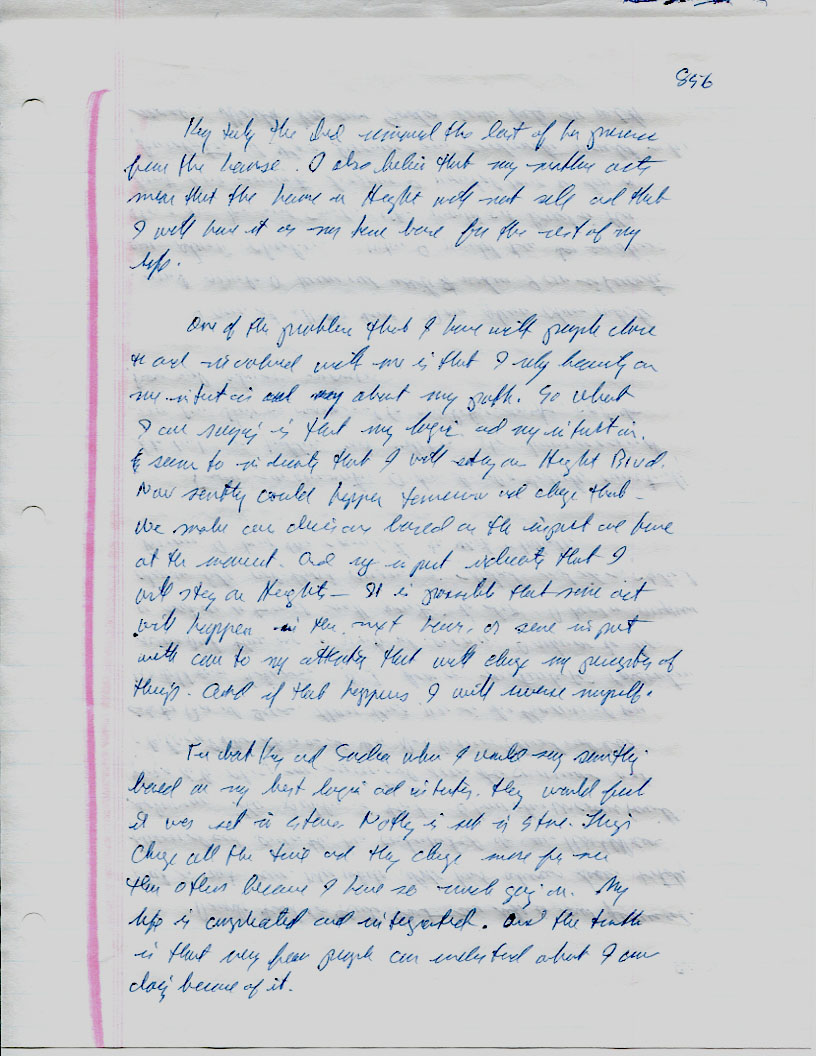 856
the last of her presence
from the house. I also believe that my mother
mean that the house on Height will not sell and that
I will have it as my home base for the rest of my
life.
One of the problems that I have with people close
to and involved with me is that I rely heavily on
my intuition and about my path. So what
I am saying is that my logic and my intuition
seem to indicate that I will stay on Height Blvd.
Now something could happen tomorrow and change that –
We make our decisions based on the input we have
at the moment. And my input indicates that I
will stay on Height – It is possible that some act
will happen in the next hour, or some input
will come to my attention that will change my perception of
things. And if that happens I will reverse myself.
and Sandra when I would say something
based on my best logic and intuition. they would feel
it was set in stone. Nothing is set in stone. Things
change all the time and they change more for me
than others because I have so much going on. My
life is complicated and integrated. And the truth
is that very few people can understand what I am
doing because of it.